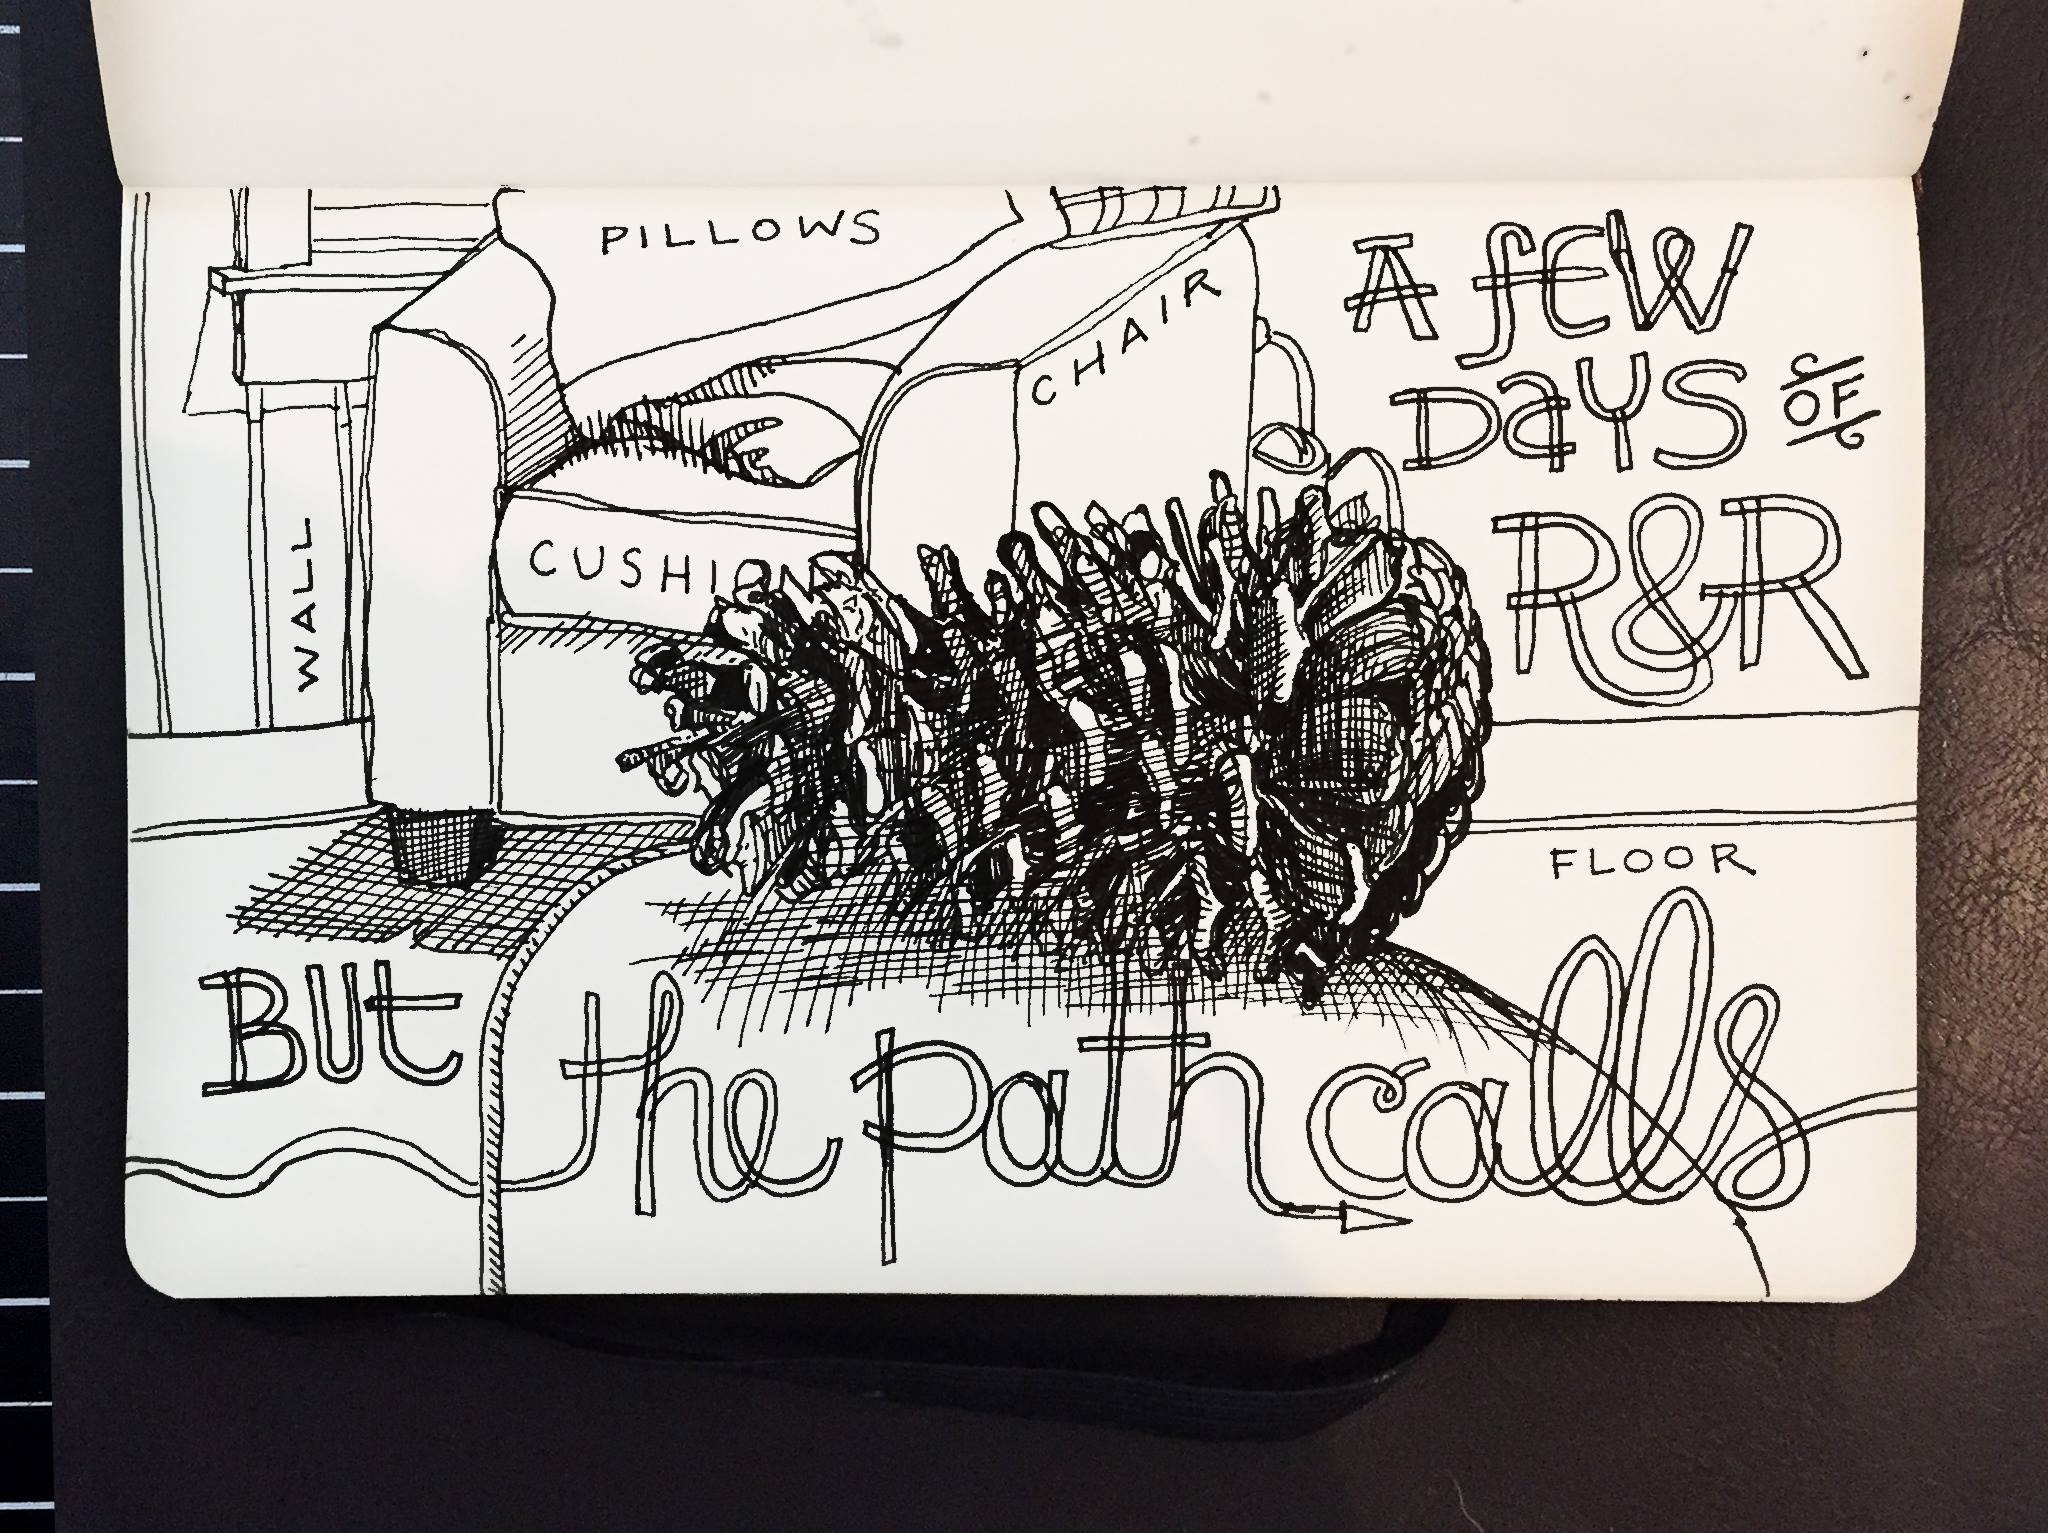 PILLOWS
CHAIR
A FEW
DAYS OF
R&R
WALL
CUSHIO
FLOOR
BUT the path calls